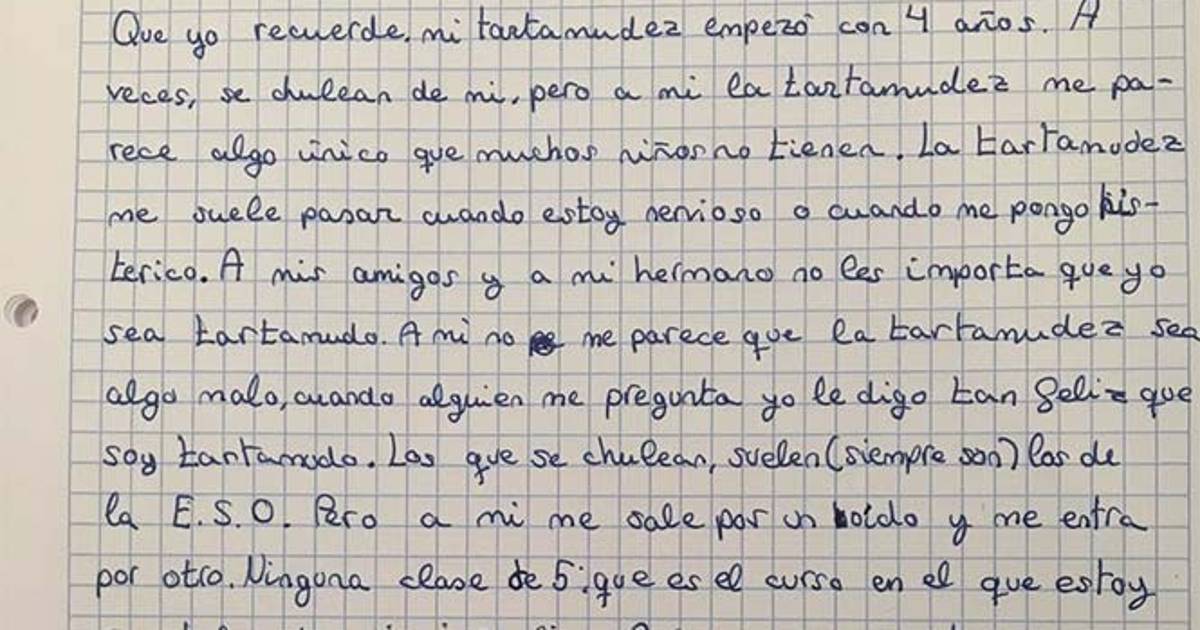 Que yo recuerde, mi tartamudez empezó con 4 años. A
veces, se chulean de mi, pero a mi la tartamudez me pa-
rece algo único que muchos niños no tienen. La tartamudez
me suele pasar cuando estoy nervioso o cuando me pongo his-
terico. A mis amigos y a mi hermano no les importa que yo
sea tartamudo. A mi no me parece que la tartamudez sea
algo malo, cuando alguien me pregunta yo le digo tan feliz que
soy tartamudo. Los que se chulean, suelen (siempre son) los de
la E.S.O. Pero a mi me sale por un oido y me entra
por otro. Ninguna clase de 5: que es el curso en el que estoy